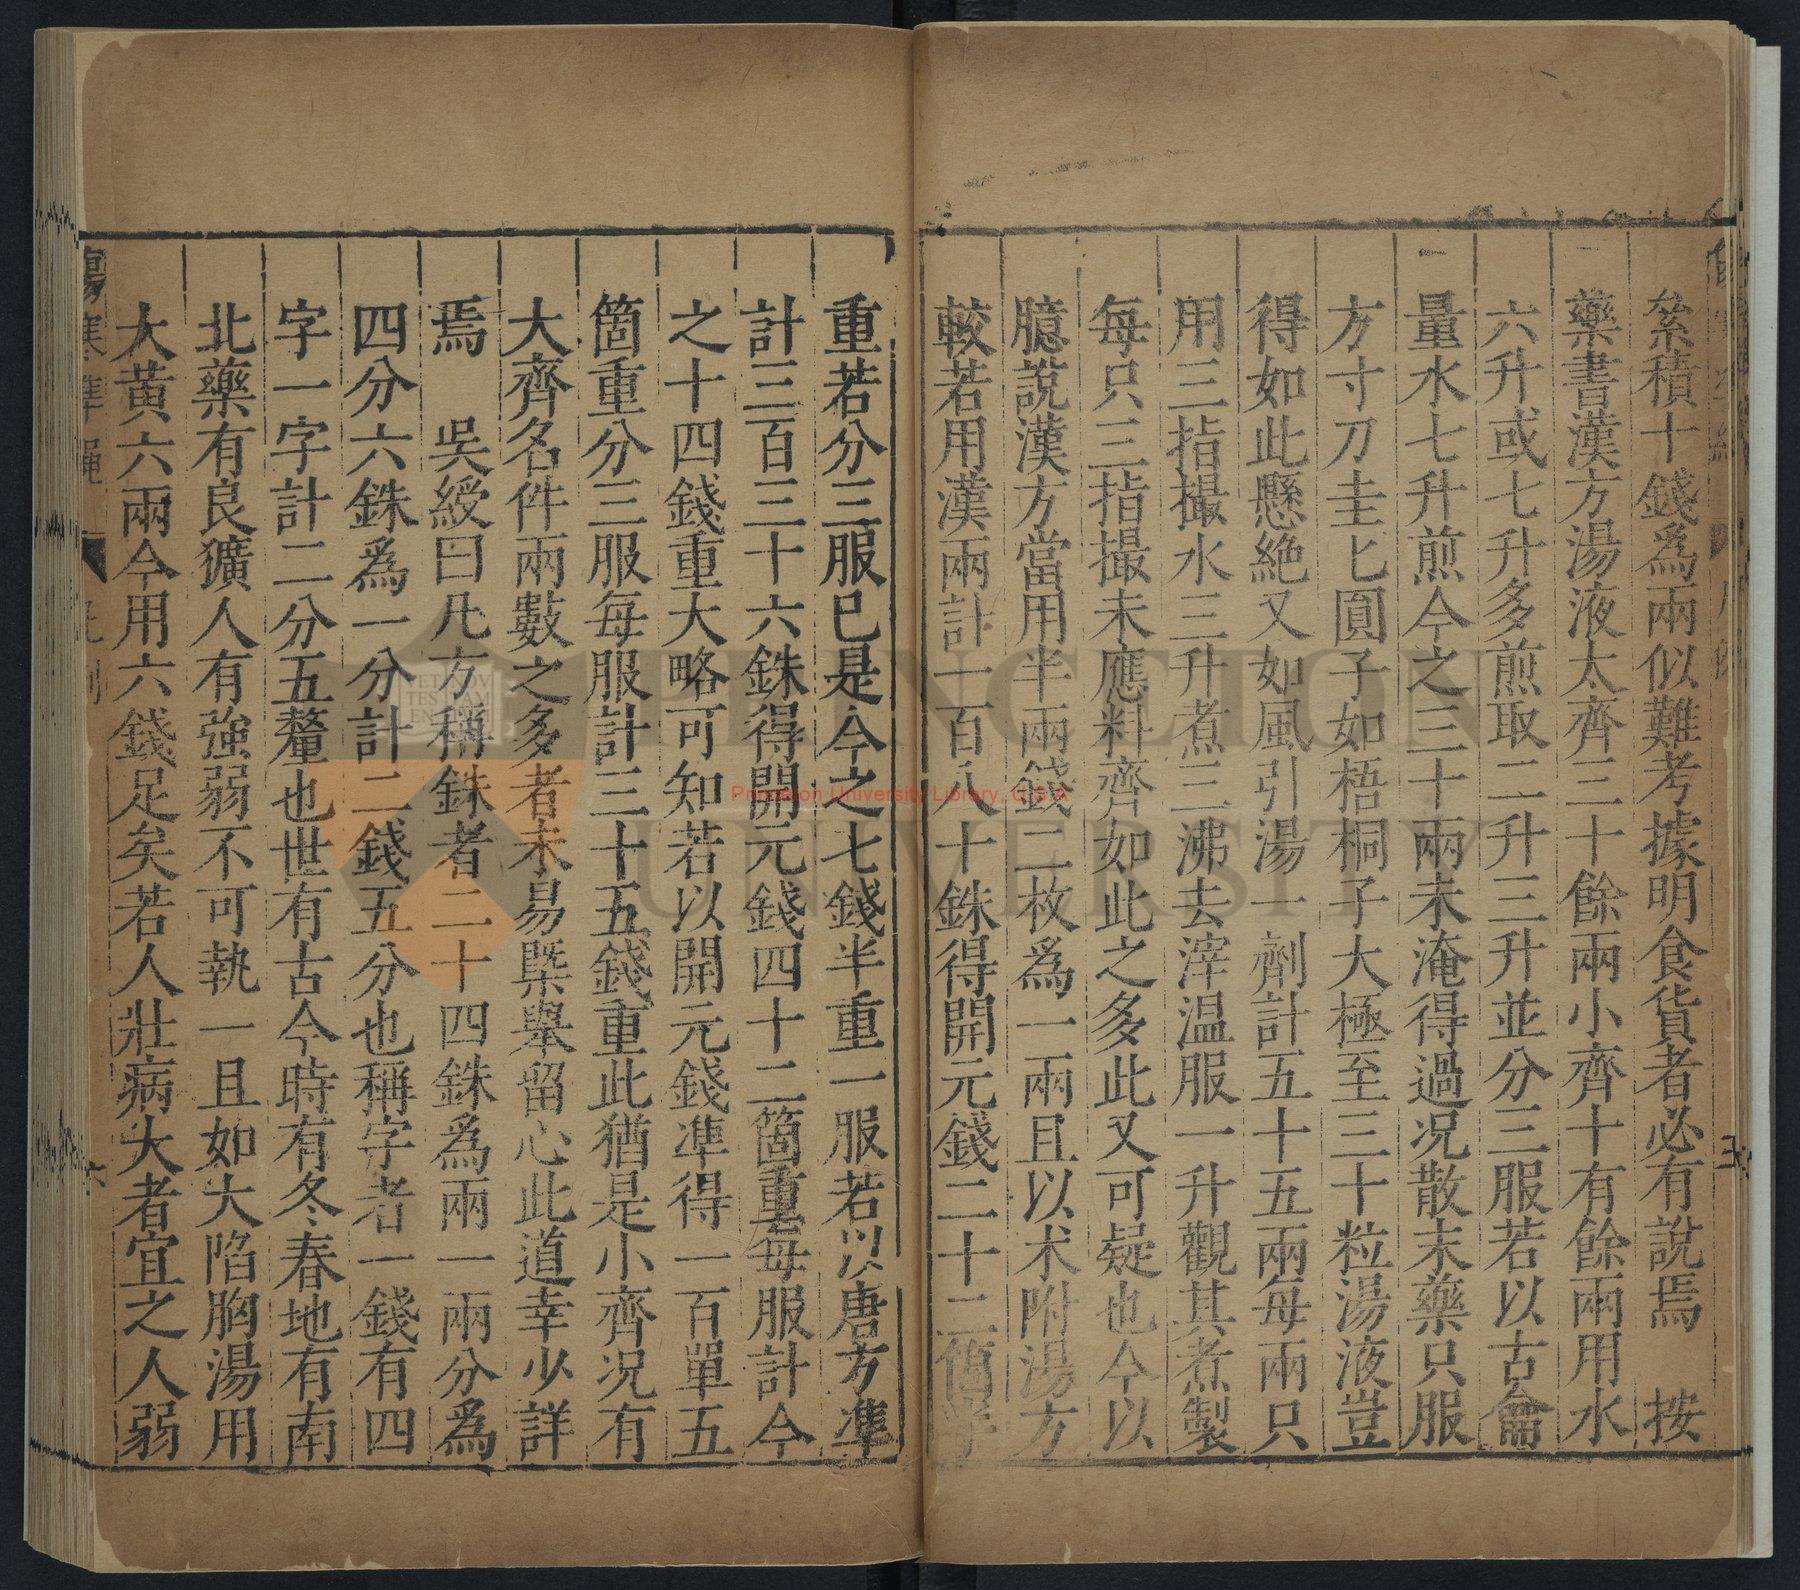 絫積十錢爲兩似難考據明食貨者必有說焉　按
藥書漢方湯液大齊三十餘兩小齊十有餘兩用水
六升或七升多煎取二升三升並分三服若以古龠
量水七升煎今之三十兩未淹得過况散末藥只服
方寸刀圭匕圓子如梧桐子大極至三十粒湯液豈
得如此懸絶又如風引湯一劑計五十五兩每兩只
用三指撮水三升煮三沸去滓温服一升觀其煮製
每只三指撮未應料齊如此之多此又可疑也今以
臆說漢方當用半兩錢二枚爲一兩且以术附湯方
較若用漢兩計一百八十銖得開元錢二十二箇半
重若分三服已是今之七錢半重一服若以唐方準
計三百三十六銖得開元錢四十二箇重每服計今
之十四錢重大略可知若以開元錢準得一百單五
箇重分三服每服計三十五錢重此猶是小齊况有
大齊名件兩數之多者未易槩舉留心此道幸少詳
焉　吳綬曰凡方稱銖者二十四銖爲兩一兩分爲
四分六銖爲一分計二錢五分也稱字者一錢有四
字一字計二分五釐也世有古今時有冬春地有南
北藥有良獷人有強弱不可執一且如大陷胸湯用
大黃六兩今用六錢足矣若人壯病大者宜之人弱
傷寒準繩
六
Princeton University Library, U.S.A
PRINCETON
UNIVERSITY